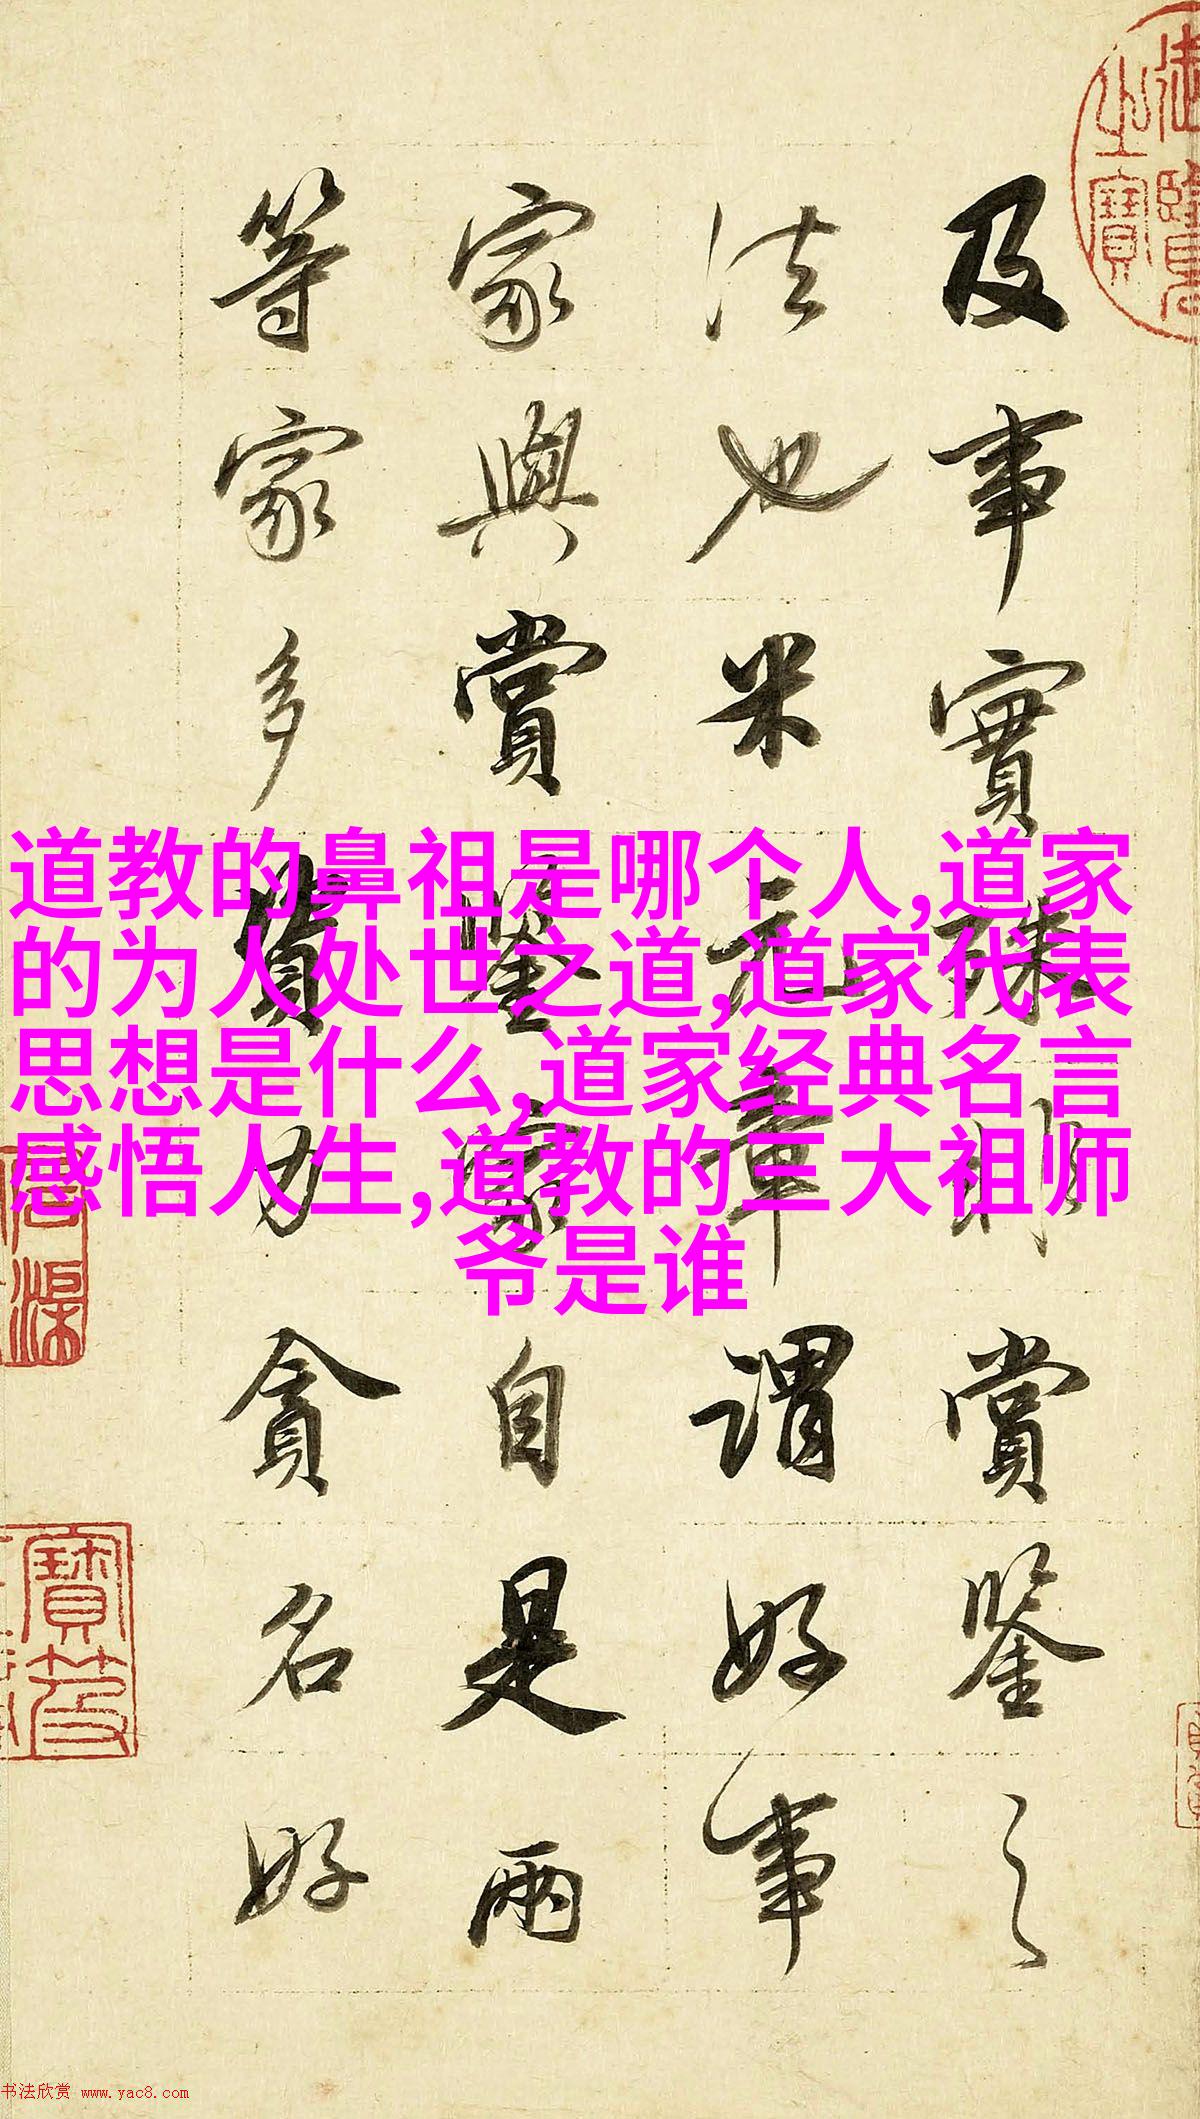 道教的鼻祖是哪个人,道家
的为人处世之道,道家代表
思想是什么,道家经典名言
感悟人生,道教的三大祖师
爷是谁
及事實殊則賞鑒之
法也米元章謂好事
家與賞鑒家自是兩
等家多貲力貪名好
御覽之寶
寶笈
书法欣赏 www.yac8.com